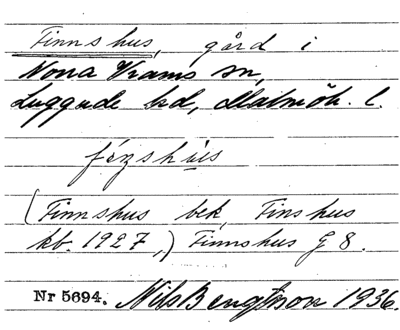 Finnshus, gård i
Norra Vrams sn,
Luggude hd, Malmöh. l.
fin̄shus
(Finnshus bek, Finshus
kb. 1927,) Finnshus G 8.
Nr 5694. Nils Bengtsson 1936.